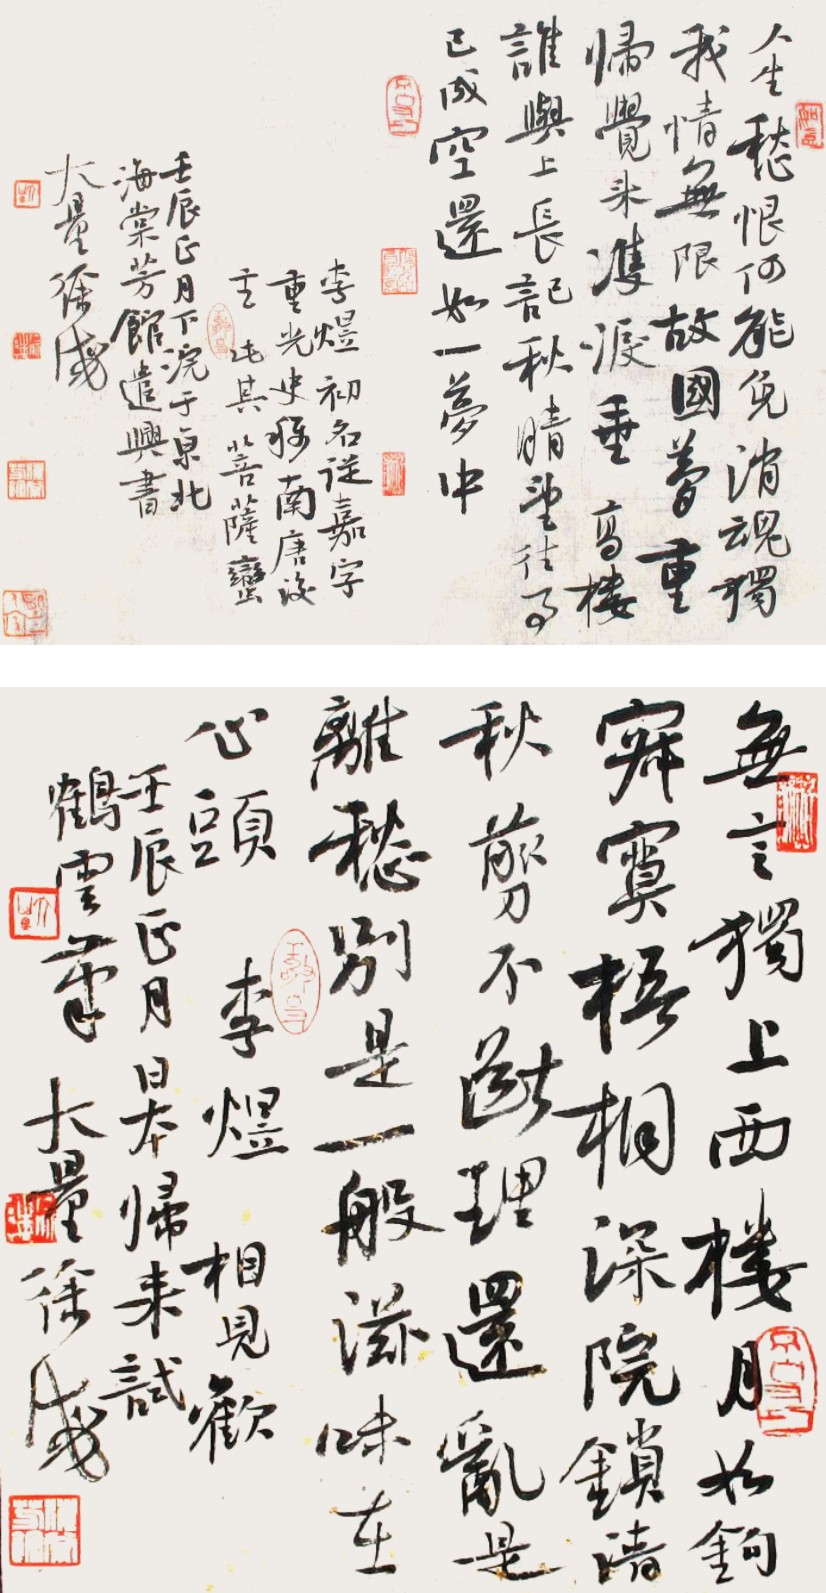 人生愁恨何能免消魂獨
我情無限故國夢重
歸覺來雙淚垂高樓
誰與上長記秋晴望往事
已成空還如一夢中
李煜初名從嘉字
重光史稱南唐後
主此其菩薩蠻
壬辰正月下浣于京北
海棠芳館遣興書
大量徐盛
無言獨上西樓月如鉤
寂寞梧桐深院鎖清
秋剪不斷理還亂是
離愁別是一般滋味在
心頭
李煜 相見歡
壬辰正月日本歸來試
鶴雲筆大量徐盛